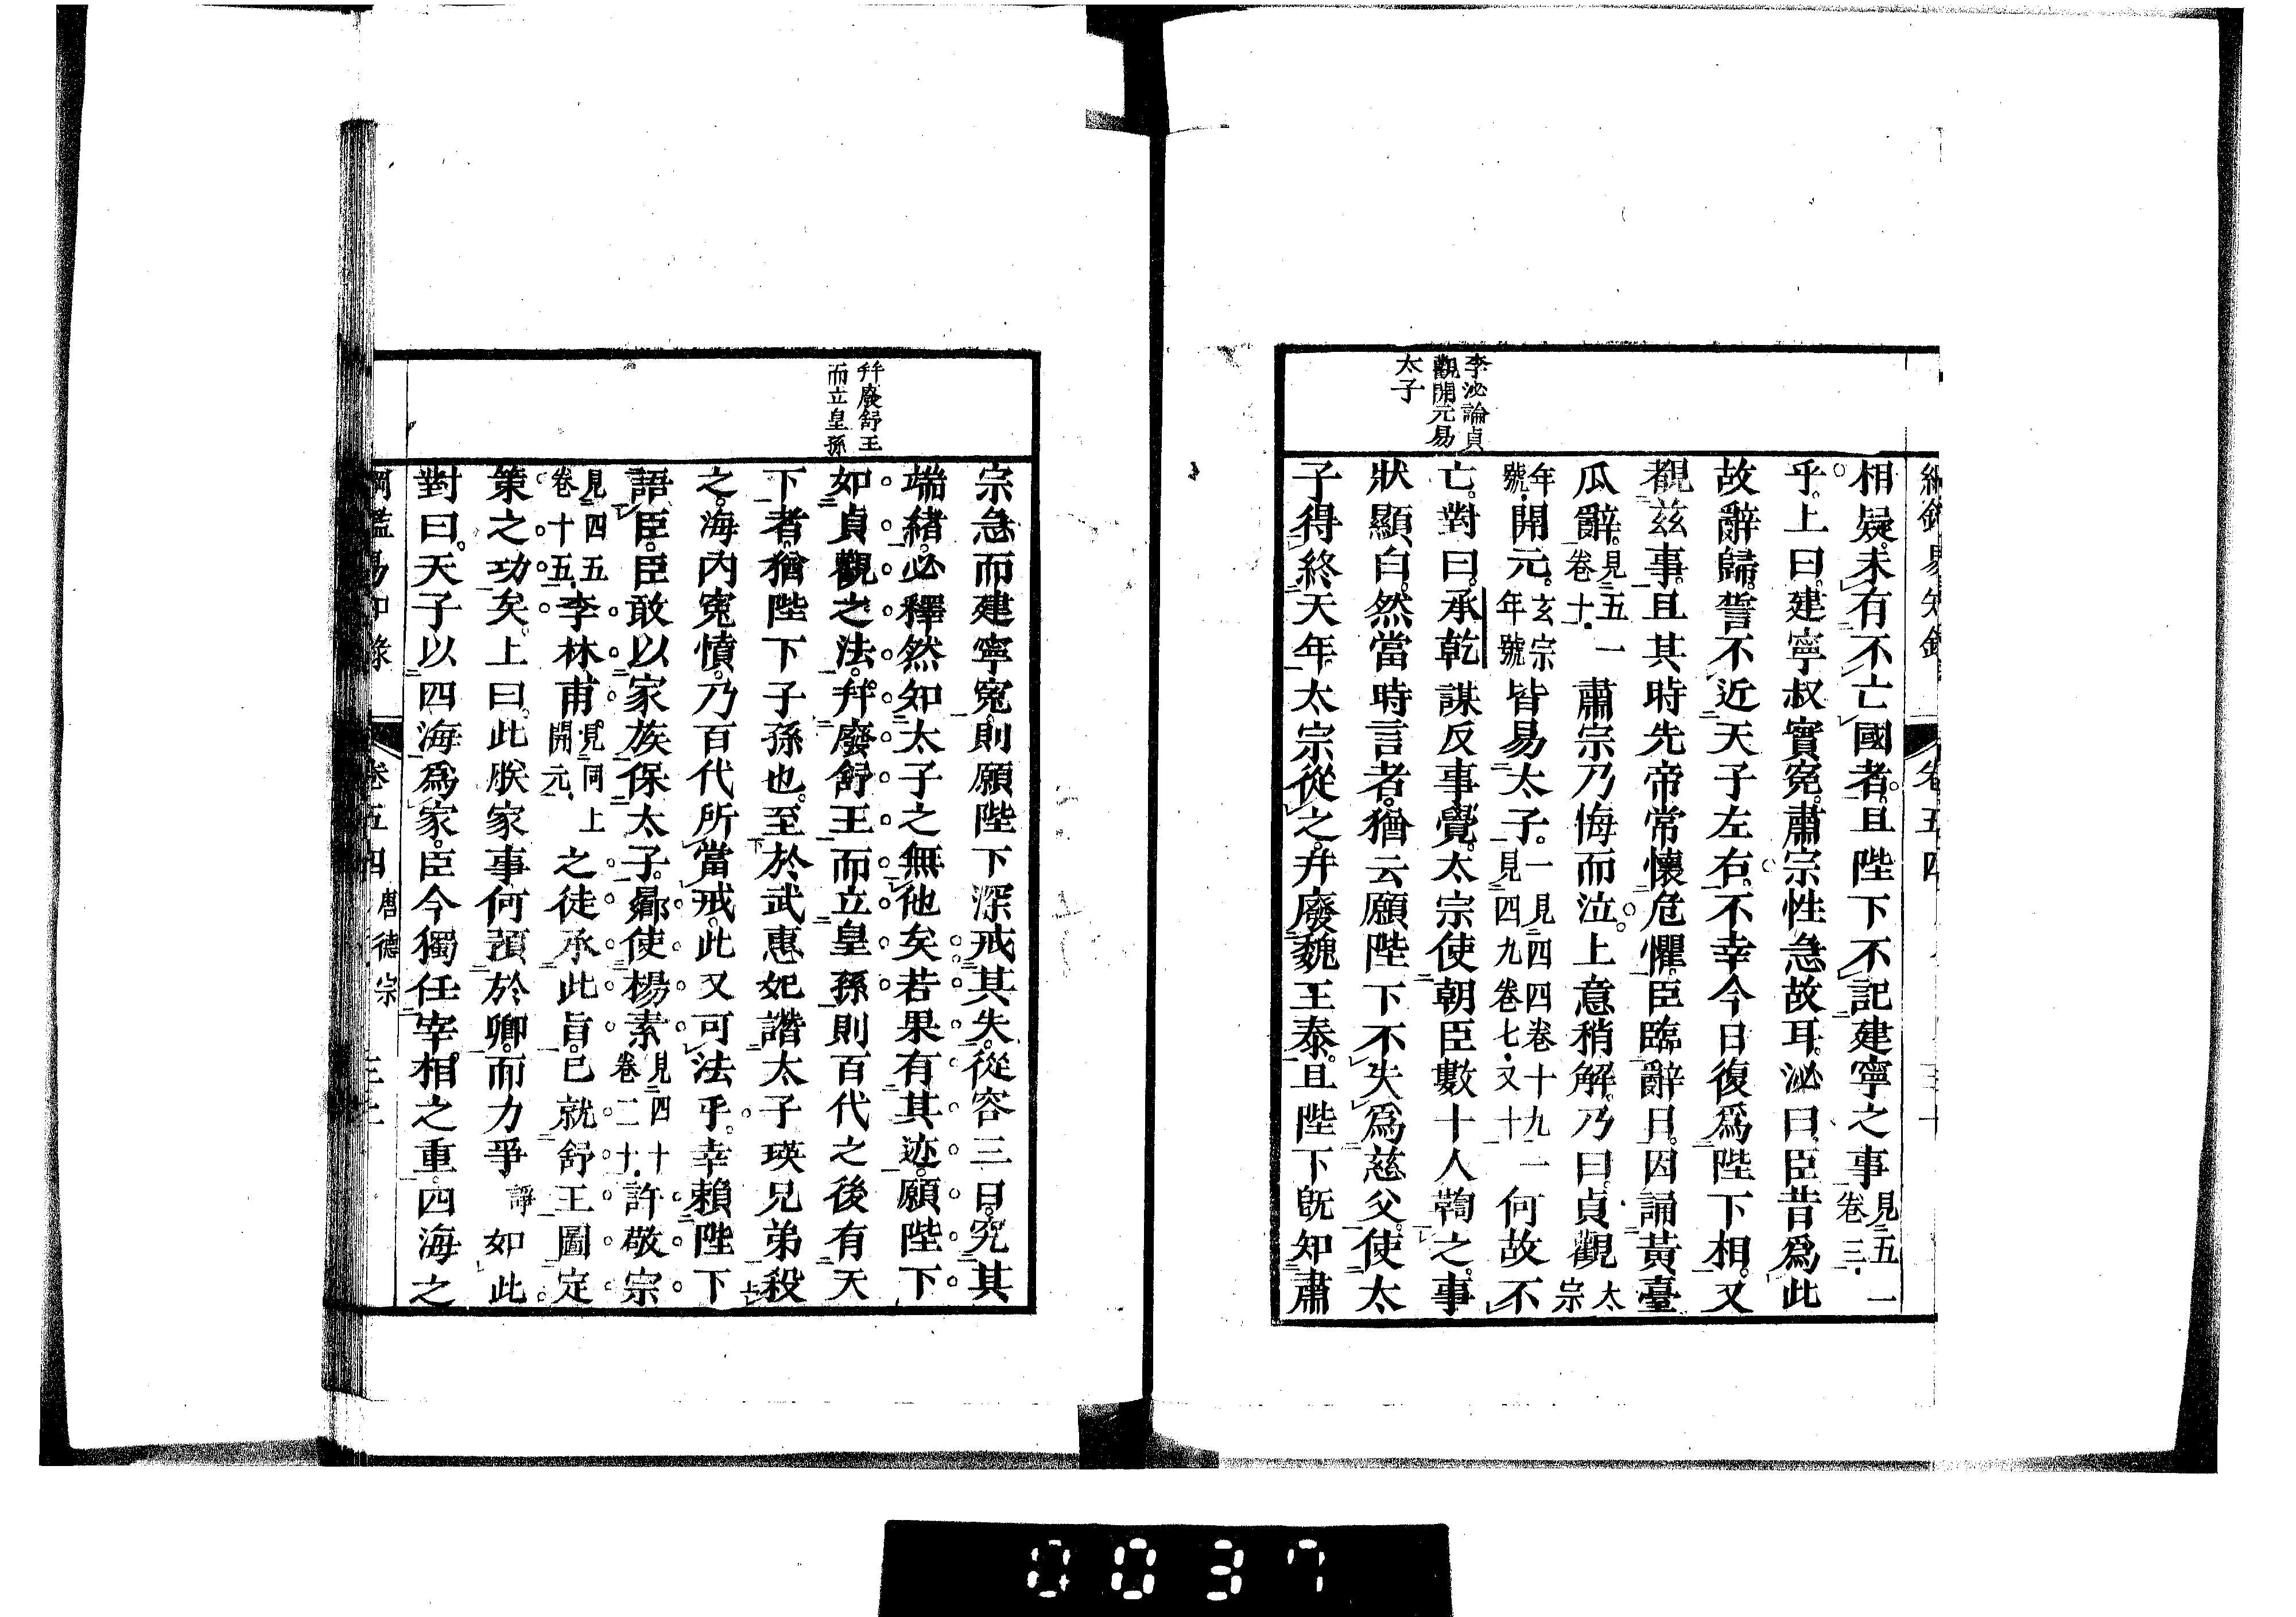 李泌論貞
觀開元易
太子
相疑未有不亡國者且陛下不記建寧之事見五一卷三
乎上曰建寧叔實冤肅宗性急故耳泌曰臣昔爲此
故辭歸誓不近天子左右不幸今日復爲陛下相又
覩茲事且其時先帝常懷危懼臣臨辭日因誦黃臺
瓜辭見五一卷十肅宗乃悔而泣上意稍解乃曰貞觀太宗
年號開元玄宗年號皆易太子一見四四卷十九一見四九卷七又十一何故不
亡對曰承乾謀反事覺太宗使朝臣數十人鞫之事
狀顯白然當時言者猶云願陛下不失爲慈父使太
子得終天年太宗從之幷廢魏王泰且陛下既知肅
幷廢舒王
而立皇孫
宗急而建寧冤則願陛下深戒其失從容三日究其
端緒必釋然知太子之無他矣若果有其迹願陛下
如貞觀之法幷廢舒王而立皇孫則百代之後有天
下者猶陛下子孫也至於武惠妃譖太子瑛兄弟殺
之海內冤憤乃百代所當戒此又可法乎幸賴陛下
語臣臣敢以家族保太子曏使楊素見四十卷二十許敬宗
見四五卷十五李林甫見同上開元之徒承此旨已就舒王圖定
策之功矣上曰此朕家事何預於卿而力爭諍如此
對曰天子以四海爲家臣今獨任宰相之重四海之
綱鑑易知錄 卷五四 唐德宗
0037